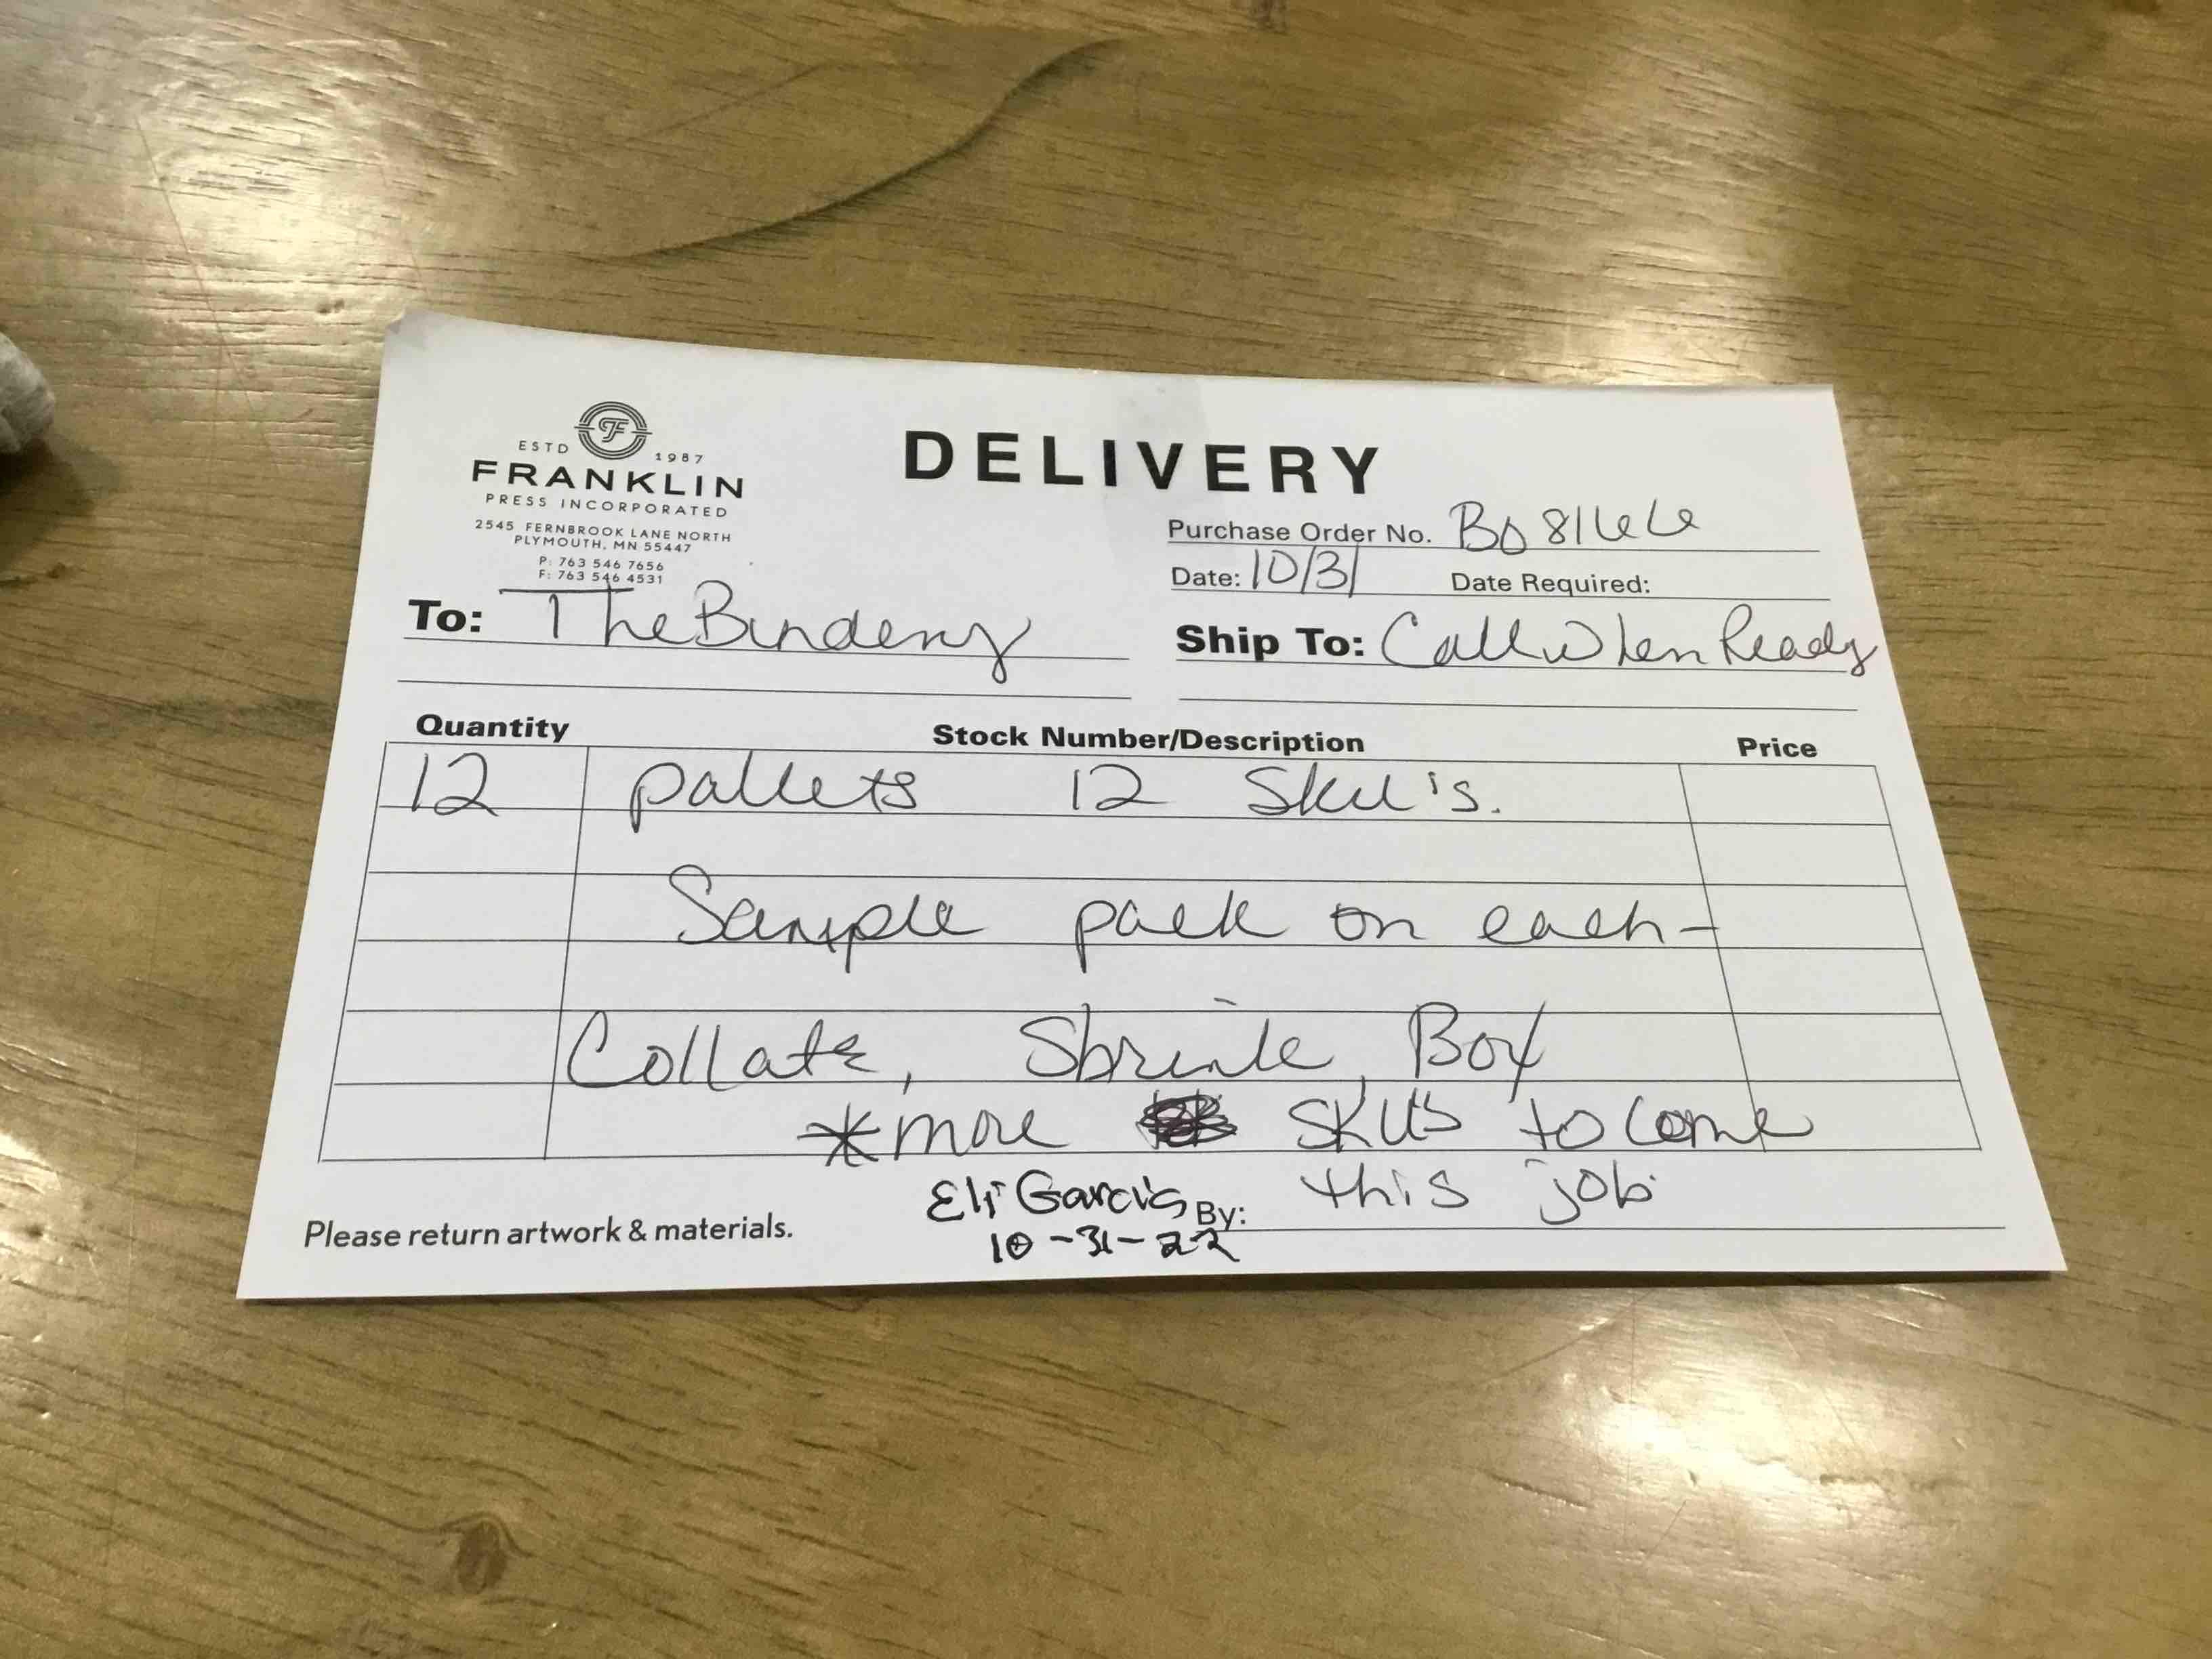 ESTD 1987
FRANKLIN
PRESS INCORPORATED
2545 FERNBROOK LANE NORTH
PLYMOUTH, MN 55447
P: 763 546 7656
F: 763 546 4531
DELIVERY
Purchase Order No. BO 81666
Date: 10/31 Date Required:
To: The Bindery
Ship To: Call When Ready
Quantity Stock Number/Description Price
12 pallets 12 Sku's.
Sample pack on each-
Collate, Shrink, Box
*more SKU's to come
this job
Eli Garcia By:
10-31-22
Please return artwork & materials.